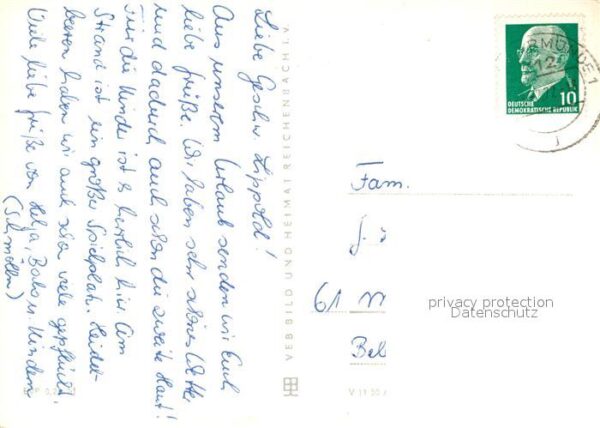 Liebe Geschw. Lippold!
Aus unserem Urlaub senden wir Euch
liebe Grüße. Wir haben sehr schönes Wetter
und dadurch auch schon die zweite Haut!
Für die Kinder ist es herrlich hier. Am
Strand ist ein großer Spielplatz. Heidel-
beeren haben wir auch schon viele gepflückt.
Viele liebe Grüße von Helja, u. Kindern
VEB BILD UND HEIMAT REICHENBACH I. V.
10
DEUTSCHE
DEMOKRATISCHE REPUBLIK
Fam.
61 M
Bel
privacy protection
Datenschutz
V 11 50